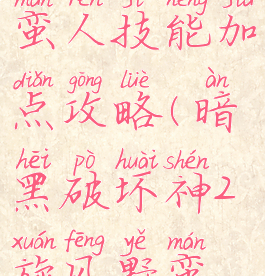 mán rén jì néng jiā
蛮人技能加
diǎn gōng lüè àn
点攻略(暗
hēi pò huài shén
黑破坏神2
xuán fēng yě mán
旋风野蛮